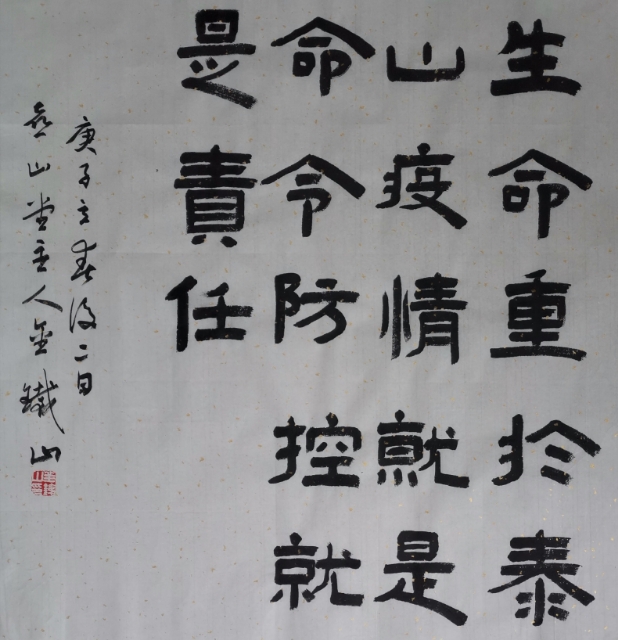 生命重於泰
山疫情就是
命令防控就
是責任
庚子立春後二日
山堂主人金鐵山